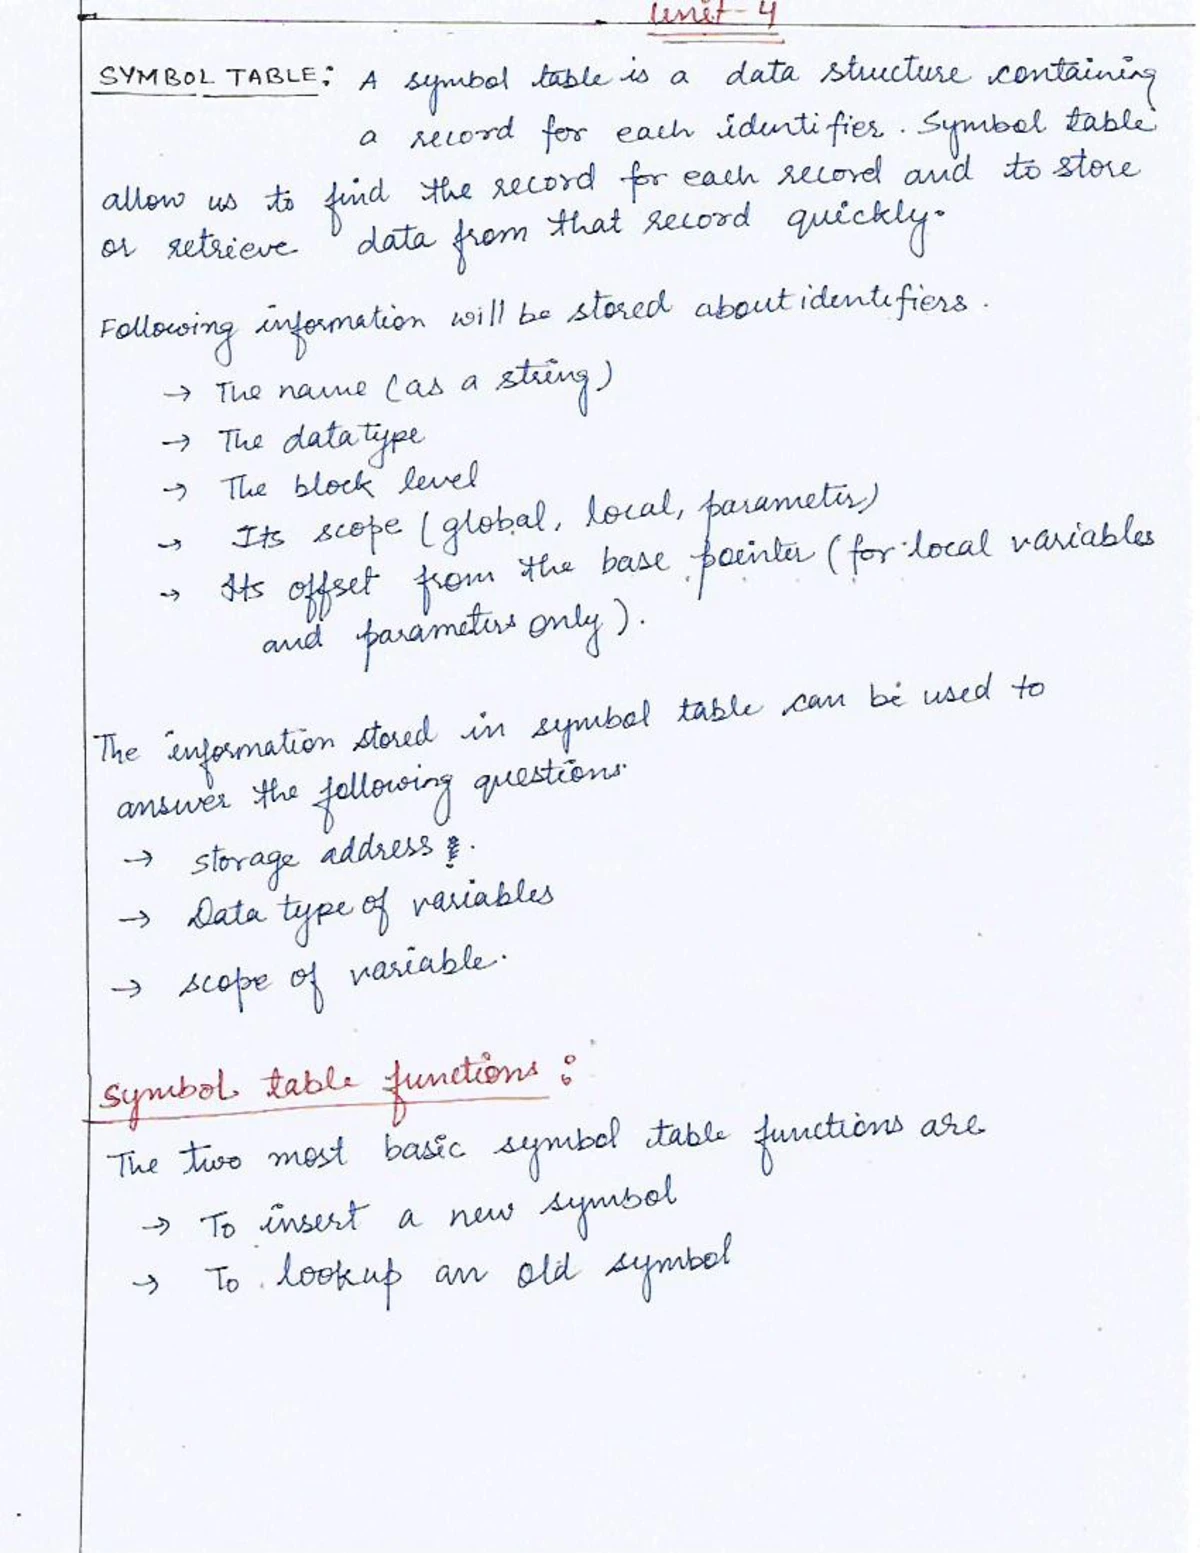 Unit-4
SYMBOL TABLE: A symbol table is a data structure containing
a record for each identifier. Symbol table
allow us to find the record for each record and to store
or retrieve data from that record quickly.
Following information will be stored about identifiers.
→ The name (as a string)
→ The datatype
→ The block level
→ Its scope (global, local, parameter)
→ Its offset from the base pointer (for local variables
and parameters only).
The information stored in symbol table can be used to
answer the following questions.
→ storage address.
→ Data type of variables
→ scope of variable.
Symbol table functions:
The two most basic symbol table functions are
→ To insert a new symbol
→ To lookup an old symbol